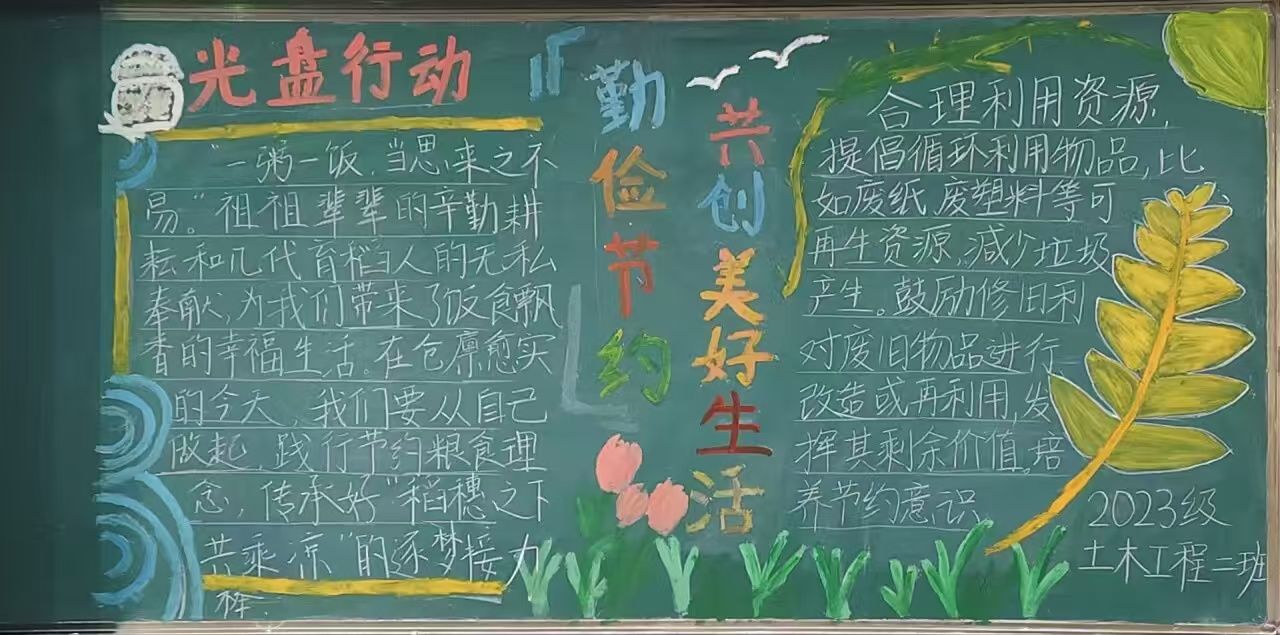 光盘行动
"一粥一饭,当思来之不
易。"祖祖辈辈的辛勤耕
耘和几代育稻人的无私
奉献,为我们带来了饭食飘
香的幸福生活。在仓廪愈实
的今天,我们要从自己
做起,践行节约粮食理
念,传承好"稻穗之下
共乘凉"的逐梦接力
棒.
勤俭节约
共创美好生活
合理利用资源,
提倡循环利用物品,比
如废纸,废塑料等可
再生资源,减少垃圾
产生。鼓励修旧利
对废旧物品进行
改造或再利用,发
挥其剩余价值。培
养节约意识
2023级
土木工程二班